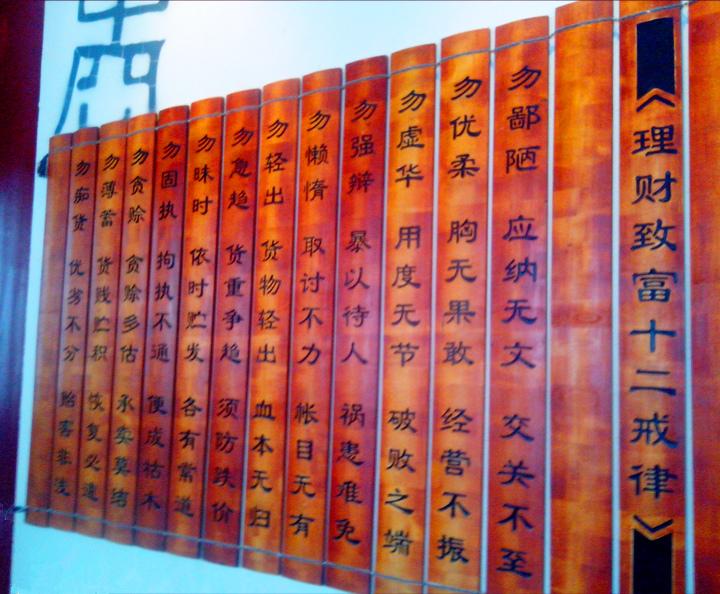 《理财致富十二戒律》
勿鄙陋 应纳无文 交关不至
勿优柔 胸无果敢 经营不振
勿虚华 用度无节 破败之端
勿强辩 暴以待人 祸患难免
勿懒惰 取讨不力 帐目无有
勿轻出 货物轻出 血本无归
勿急趋 货重争趋 须防跌价
勿昧时 依时贮发 各有常道
勿固执 拘执不通 便成枯木
勿贪赊 贪赊多估 承卖莫
勿薄蓄 货贱贮积 恢复必速
勿痴货 优劣不分 贻害非浅